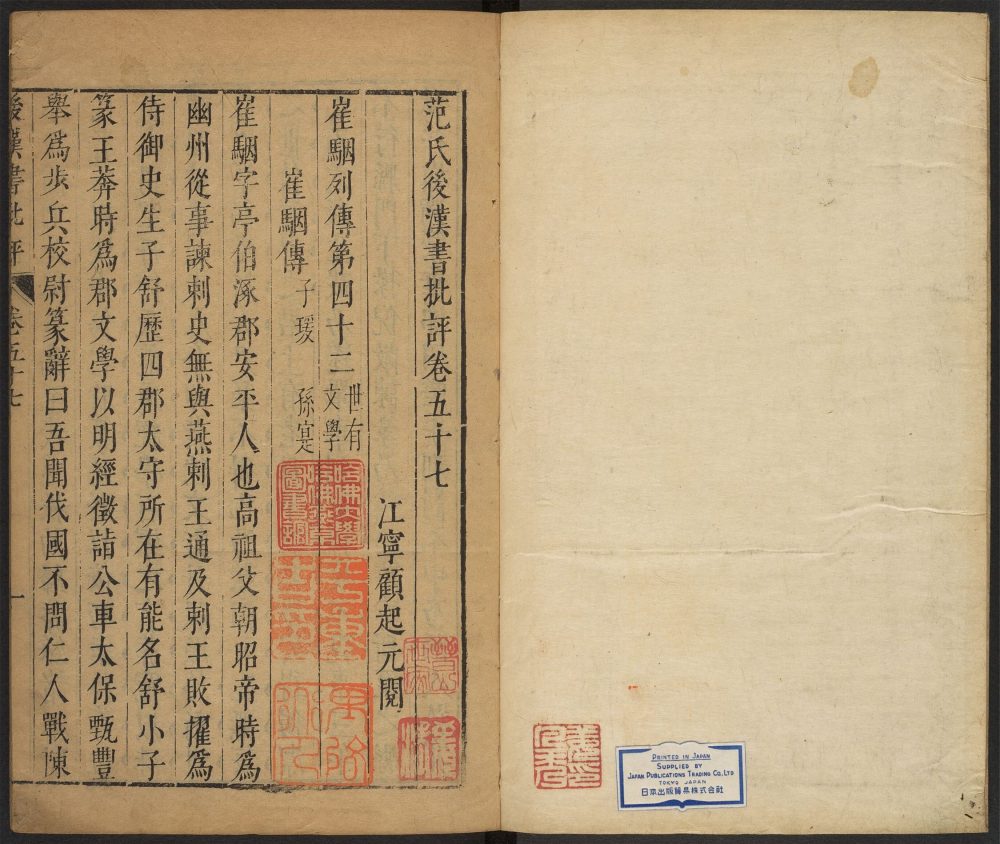 范氏後漢書批評卷五十七
江寧顧起元閱
崔駰列傳第四十二 世有文學
崔駰傳 子瑗 孫寔
崔駰字亭伯涿郡安平人也高祖父朝昭帝時爲
幽州從事諫刺史無與燕剌王通及剌王敗擢爲
侍御史生子舒歷四郡太守所在有能名舒小子
篆王莽時爲郡文學以明經徵詣公車太保甄豐
舉爲步兵校尉篆辭曰吾聞伐國不問仁人戰陳
後漢書批評 卷五十七 一
哈佛大學
哈佛燕京
圖書館
PRINTED IN JAPAN
SUPPLIED BY
JAPAN PUBLICATIONS TRADING CO., LTD
TOKYO JAPAN
日本出版貿易株式会社